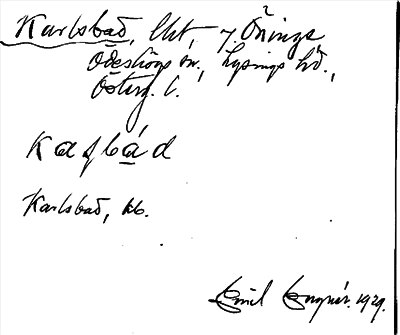 Karlsbad, lht, 7. Önings
Ödeshögs sn., Lysings hd.,
Österg. l.
Kaʃbád
Karlsbad, kb.
Emil 1929.